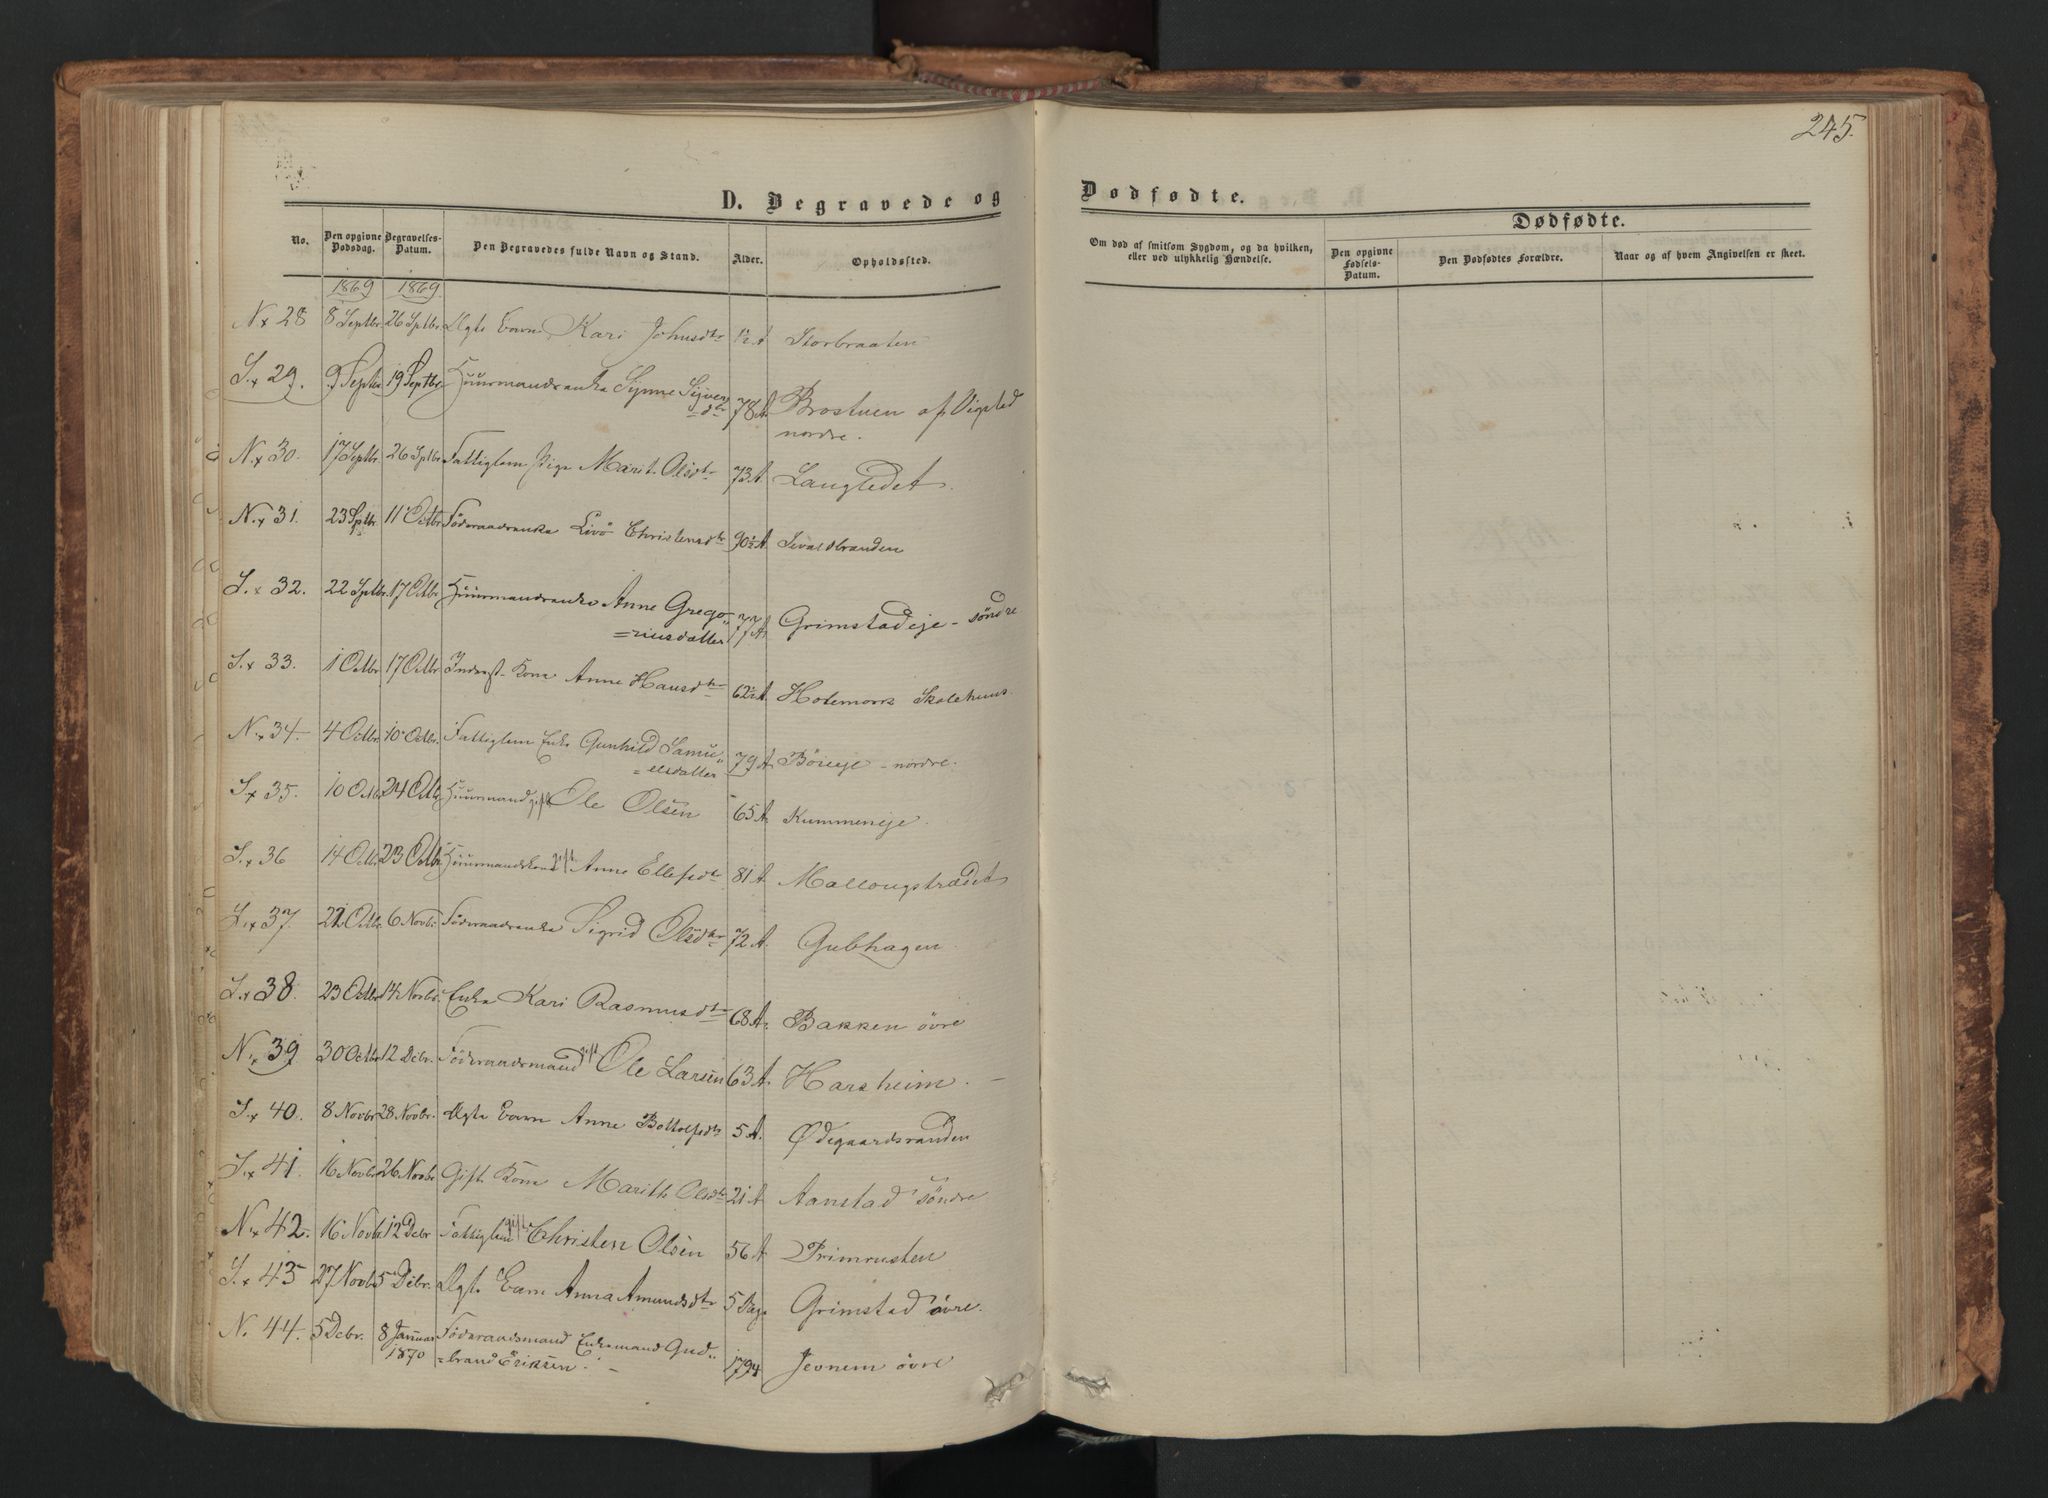 245.
D. Begravede og Dødfødte.
Dødfødte.
No. Den opgivne Dødsdag. Begravelses-Datum. Den Begravedes fulde Navn og Stand. Alder. Opholdssted. Om død af smitsom Sygdom, og da hvilken, eller ved ulykkelig Hændelse. Den opgivne Fødsels-Datum. Den Dødfødtes Forældre. Naar og af hvem Angivelsen er skeet.
1869 1869.
N.x 28 8 Septbr. 26 Sptbr. Ægte Barn Kari Johnsdtr 1½ A Storbraaten
S.x 29. 9 Septbr 19 Septbr. Huusmandsenke Synne Syver
=dtr 78 A. Brostuen af Vigstad
nordre.
N.x 30. 17 Septbr. 26 Sptbr. Fattiglem Pige Marit Olsdtr 73 A. Langledet.
N.x 31. 23 Sptbr. 11 Octbr Föderaadsenke Livö Christensdtr 90½ A.
S.x 32. 22 Sptbr. 17 Octbr Huusmandsenke Anne Grego„
=riusdatter 77 A. Grimstadeje - söndre
S.x 33. 1 Octbr 17 Octbr Inderst-Kone Anne Hansdtr 62½ A. Hotemork Skolehuus.
N.x 34. 4 Octbr. 10 Octbr. Fattiglem Enke Gunhild Samu„
=elsdatter 79 A. Böeeje - nordre.
S.x 35. 10 Octbr 24 Octbr Huusmand gift Ole Olsen 65 A. Kummeneje.
S.x 36 14 Octbr. 23 Octbr Huusmandskone gift Anne Ellefsdtr 81 A. Mallongstrædet
S.x 37. Octbr. 6 Novbr. Föderaadsenke Sigrid Olsdtr 72 A. Gubhagen.
S.x 38. 23 Octbr 14 Novbr. Enke Kari Rasmusdtr 68 A. Bakken övre
N.x 39 30 Octbr 12 Debr. Föderaadsmand gift Ole Larsen 63 A. Harsheim.
S.x 40. 8 Novbr 28 Novbr. Ægte Barn Anne Bottolfsdtr 5 A. Ødegaardsranden
S.x 41. 16 Novbr 26 Novbr Gift Kone Marith Olsdtr 21 A Aanstad söndre
N.x 42. 16 Novbr 12 Debr Fattiglem gift Christen Olsen 56 A. Primrusten
S.x 43 27 Novbr 5 Debr. Ægte Barn Anna Amundsdtr 5 Dage Grimstad övre.
N. 44. 5 Debr. 8 Januar
1870 Föderaadsmand Enkemand Gud„
=brand Eriksen. 1794 Jevnem övre